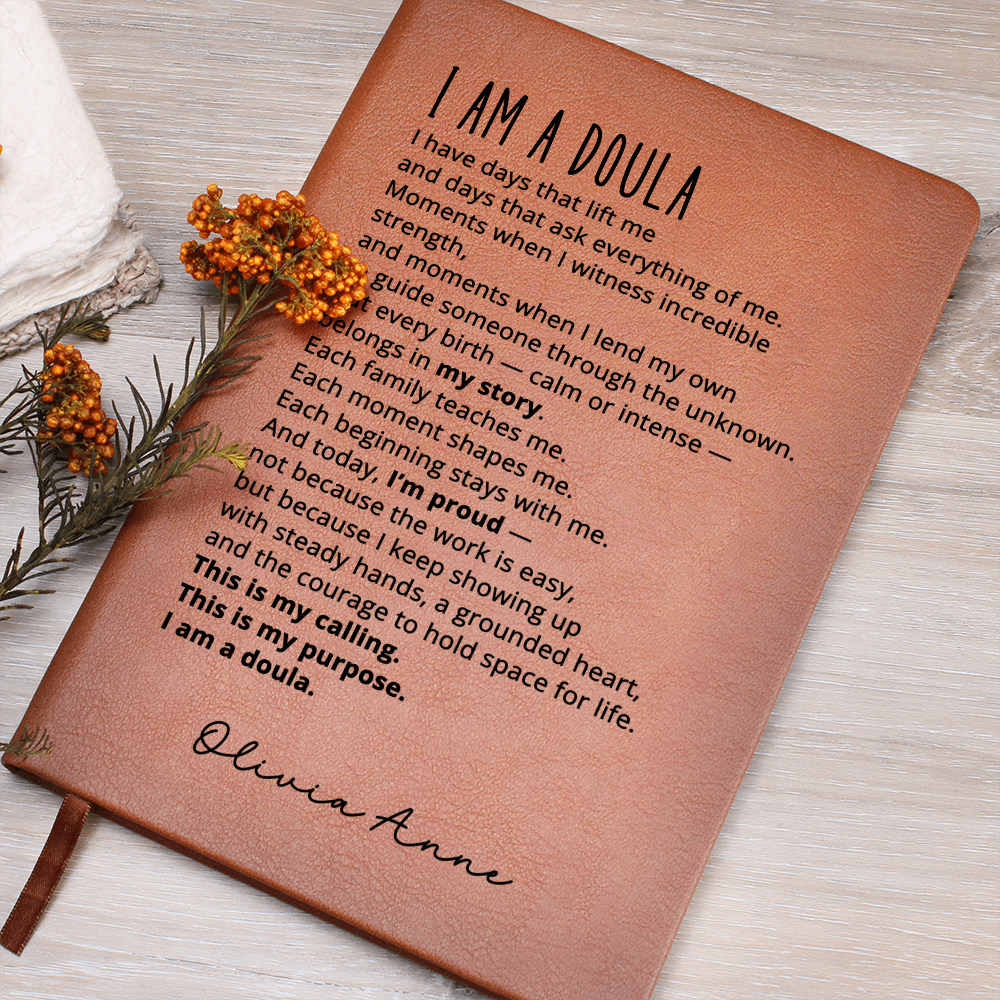 I AM A DOULA
I have days that lift me
and days that ask everything of me.
Moments when I witness incredible
strength,
and moments when I lend my own
guide someone through the unknown.
every birth — calm or intense —
belongs in my story.
Each family teaches me.
Each moment shapes me.
Each beginning stays with me.
And today, I’m proud —
not because the work is easy,
but because I keep showing up
with steady hands, a grounded heart,
and the courage to hold space for life.
This is my calling.
This is my purpose.
I am a doula.
Olivia Anne